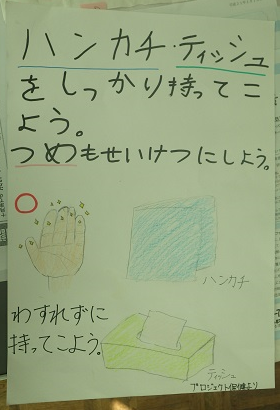 ハンカチ・ティッシュ
をしっかり持ってこ
よう。
つめもせいけつにしよう。
ハンカチ
わすれずに
持ってこよう。
ティッシュ
プロジェクト保健より